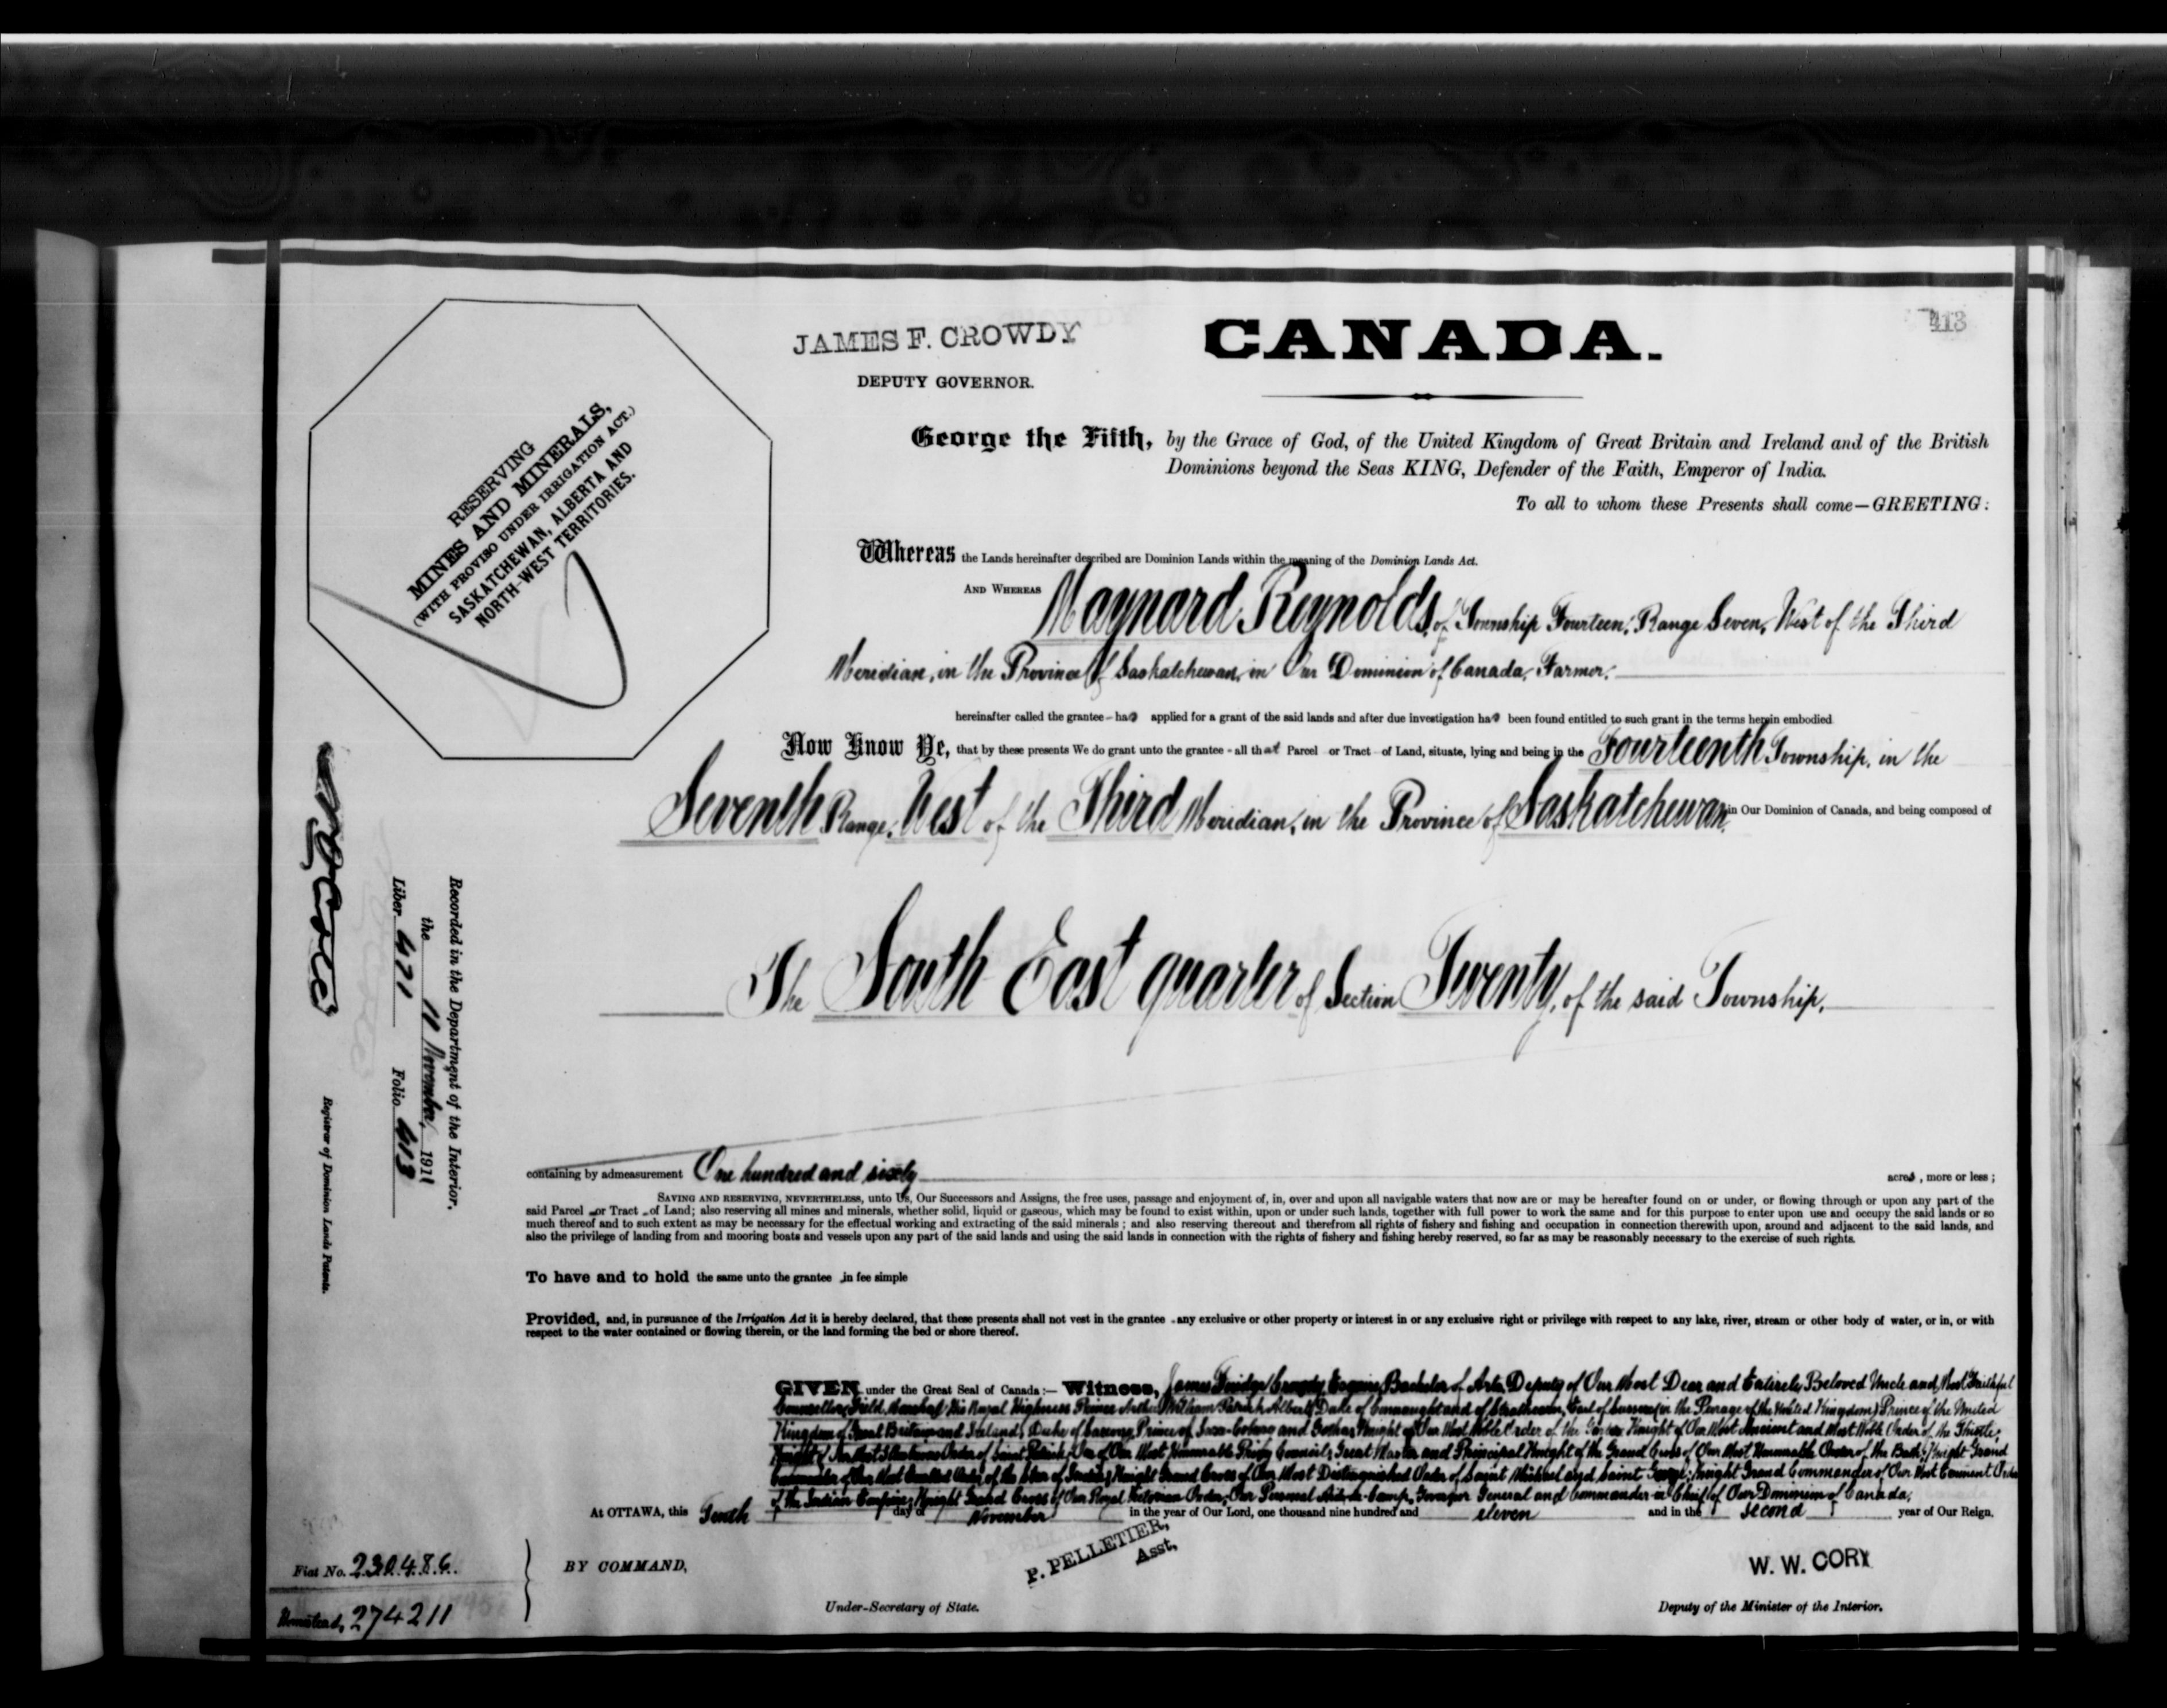 413
JAMES F. CROWDY
DEPUTY GOVERNOR.
CANADA.
RESERVING
MINES AND MINERALS,
(WITH PROVISO UNDER IRRIGATION ACT.)
SASKATCHEWAN, ALBERTA AND
NORTH-WEST TERRITORIES.
George the Fifth, by the Grace of God, of the United Kingdom of Great Britain and Ireland and of the British
Dominions beyond the Seas KING, Defender of the Faith, Emperor of India.
To all to whom these Presents shall come—GREETING:
Whereas the Lands hereinafter described are Dominion Lands within the meaning of the Dominion Lands Act.
AND WHEREAS Maynard Reynolds, of Township Fourteen, Range Seven, West of the Third
Meridian, in the Province of Saskatchewan, in Our Dominion of Canada, Farmer.
hereinafter called the grantee - has applied for a grant of the said lands and after due investigation has been found entitled to such grant in the terms herein embodied
Now Know Ye, that by these presents We do grant unto the grantee - all that Parcel or Tract of Land, situate, lying and being in the Fourteenth Township, in the
Seventh Range, West of the Third Meridian, in the Province of Saskatchewan, in Our Dominion of Canada, and being composed of
The South East quarter of Section Twenty, of the said Township.
containing by admeasurement One hundred and sixty acres, more or less;
SAVING AND RESERVING, NEVERTHELESS, unto Us, Our Successors and Assigns, the free uses, passage and enjoyment of, in, over and upon all navigable waters that now are or may be hereafter found on or under, or flowing through or upon any part of the
said Parcel or Tract of Land; also reserving all mines and minerals, whether solid, liquid or gaseous, which may be found to exist within, upon or under such lands, together with full power to work the same and for this purpose to enter upon use and occupy the said lands or so
much thereof and to such extent as may be necessary for the effectual working and extracting of the said minerals; and also reserving thereout and therefrom all rights of fishery and fishing and occupation in connection therewith upon, around and adjacent to the said lands, and
also the privilege of landing from and mooring boats and vessels upon any part of the said lands and using the said lands in connection with the rights of fishery and fishing hereby reserved, so far as may be reasonably necessary to the exercise of such rights.
To have and to hold the same unto the grantee in fee simple
Provided, and, in pursuance of the Irrigation Act it is hereby declared, that these presents shall not vest in the grantee - any exclusive or other property or interest in or any exclusive right or privilege with respect to any lake, river, stream or other body of water, or in, or with
respect to the water contained or flowing therein, or the land forming the bed or shore thereof.
GIVEN under the Great Seal of Canada:— Witness, James Crowdy, Esquire, Bachelor of Arts, Deputy of Our Most Dear and Entirely Beloved Uncle and Most Faithful
Counsellor, Field Marshal His Royal Highness Prince Arthur William Patrick Albert, Duke of Connaught and of Strathearn, Earl of Sussex (in the Peerage of the United Kingdom) Prince of the United
Kingdom of Great Britain and Ireland, Duke of Saxony, Prince of Saxe-Coburg and Gotha; Knight of Our Most Noble Order of the Garter; Knight of Our Most Ancient and Most Noble Order of the Thistle;
Knight of Our Most Illustrious Order of Saint Patrick; One of Our Most Honourable Privy Council; Great Master and Principal Knight of the Grand Cross of Our Most Honourable Order of the Bath; Knight Grand
Commander of Our Most Exalted Order of the Star of India; Knight Grand Cross of Our Most Distinguished Order of Saint Michael and Saint George; Knight Grand Commander of Our Most Eminent Order
of the Indian Empire; Knight Grand Cross of Our Royal Victorian Order; Our Personal Aide-de-Camp, Governor General and Commander in Chief of Our Dominion of Canada,
At OTTAWA, this Tenth day of November in the year of Our Lord, one thousand nine hundred and eleven and in the second year of Our Reign.
BY COMMAND,
P. PELLETIER,
Asst.
Under-Secretary of State.
W. W. CORY
Deputy of the Minister of the Interior.
Fiat No. 230486.
Homestead, 274211
Recorded in the Department of the Interior,
the 11 November, 1911
Liber 471 Folio 413
Registrar of Dominion Lands Patents.